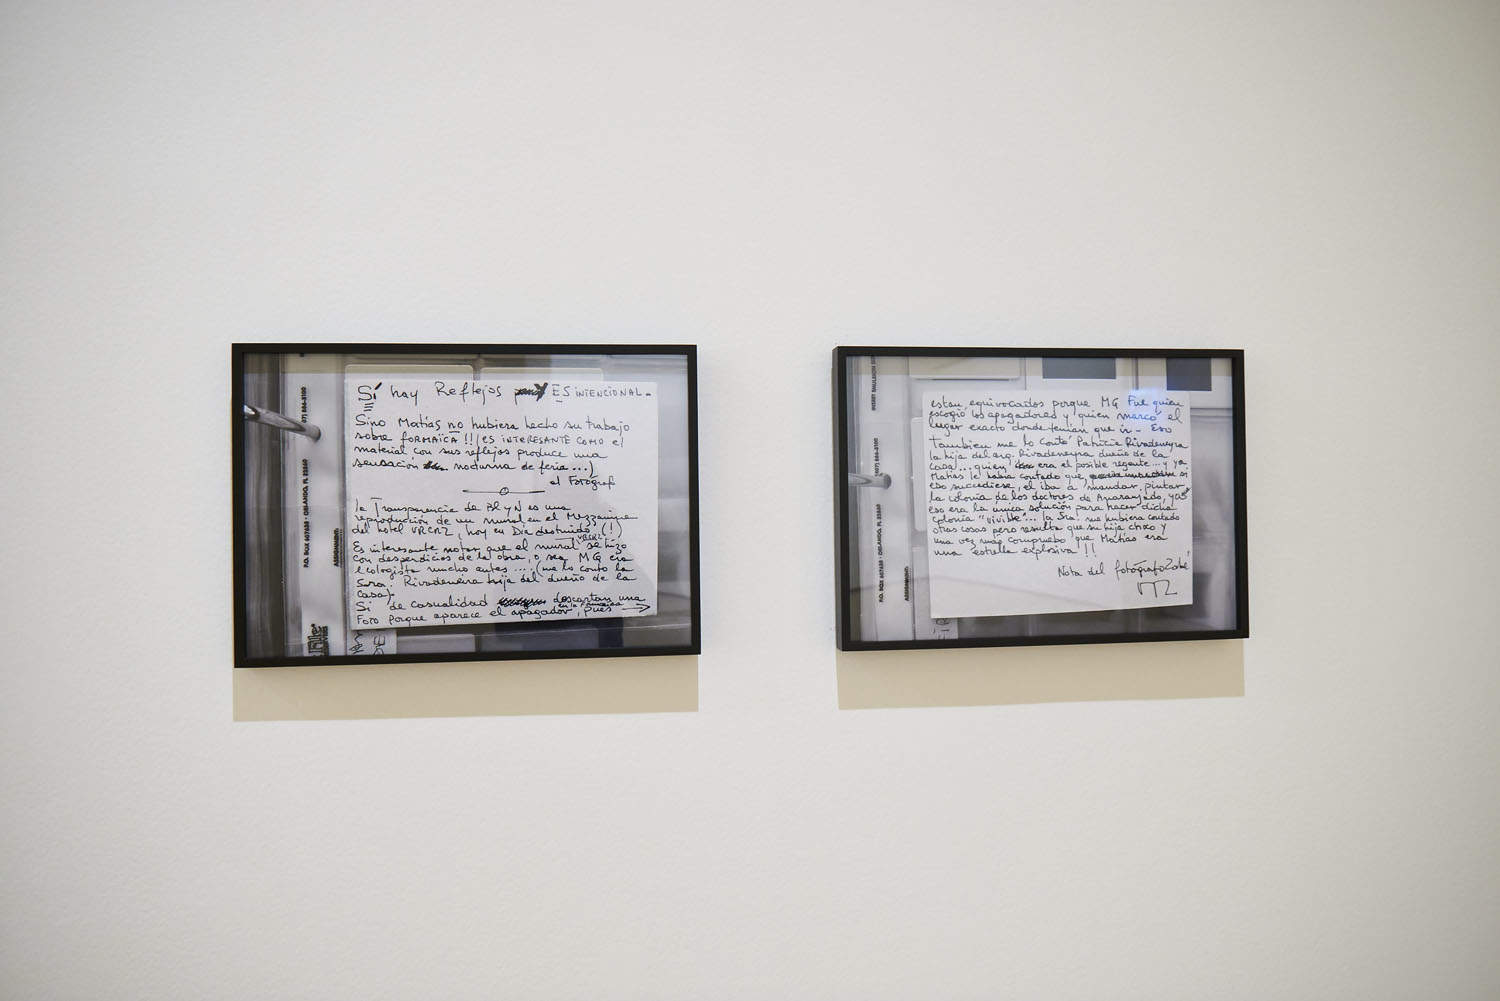 Sí hay Reflejos y ES INTENCIONAL.
Sino Matías no hubiera hecho su trabajo
sobre FORMAICA!! (ES INTERESANTE COMO el
material con sus reflejos produce una
sensación nocturna de feria...)
el Fotógraf
la Transparencia de Bl y N es una
reproducción de un mural en el Mezzanine
del hotel VRCRZ, hoy en Día destruido (!)
Es interesante notar que el mural VRCRZ se hizo
con desperdicios de la obra, o sea MG era
ecologista mucho antes .... (me lo conto la
Sora. Rivadeneira hija del dueño de la
casa).
Si de casualidad descartan una
Foto porque aparece el apagador en la Formaica, pues →
P.O. BOX 607638 • ORLANDO, FL 32860
(407) 886-3100
ASSIGNMENT:
estan equivocados porque MG Fue quien
escogió los apagadores y quien marcó el
lugar exacto donde tenían que ir. Eso
tambien me lo contó Patricia Rivadeneyra
la hija del arq. Rivadeneyra dueño de la
casa... quien era el posible regente... y ya
Matías le había contado que si
eso sucediese, el iba a mandar pintar
la colonia de los doctores de Anaranjado, y
eso era la única solución para hacer dicha
colonia "vivible"... la Sra. me hubiera contado
otras cosas pero resulta que su hija choco y
una vez más compruebo que Matías era
una estrella explosiva!!
Nota del fotógrafo
INSERT EMULSION
(407) 886-3100
P.O. BOX 607638 • ORLANDO, FL 32860
ASSIGNMENT: